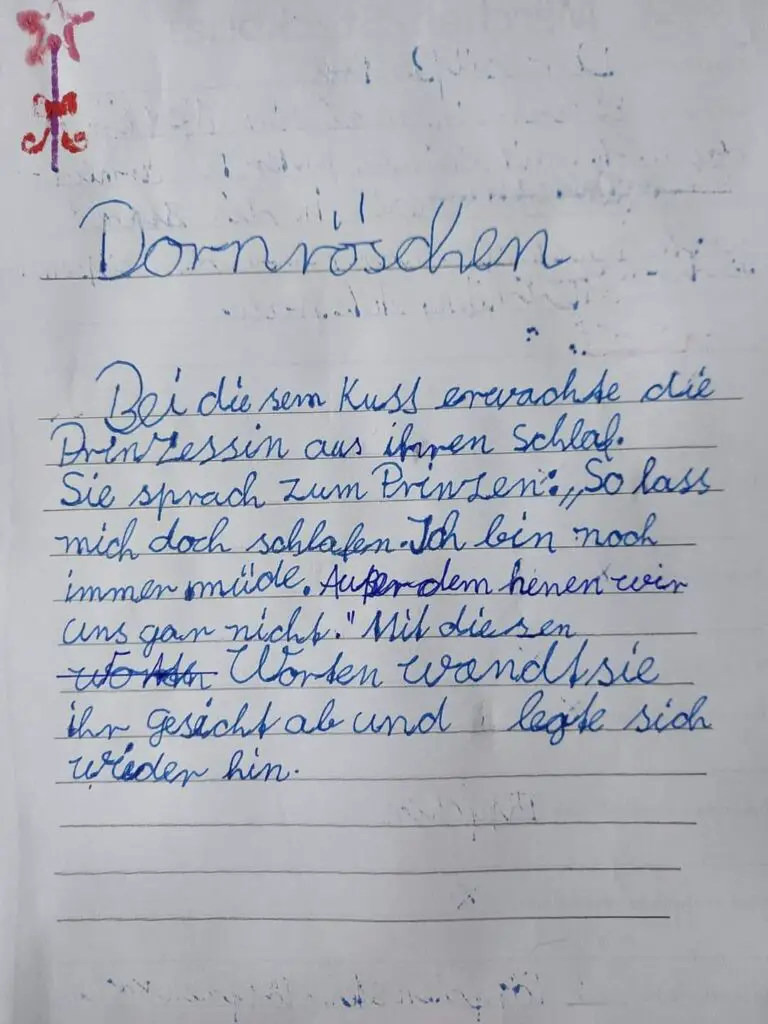 Dornröschen
Bei diesem Kuss erwachte die
Prinzessin aus ihren Schlaf.
Sie sprach zum Prinzen: „So lass
mich doch schlafen. Ich bin noch
immer müde. Außerdem henen wir
uns gar nicht." Mit diesen
Worten wandt sie
ihr gesicht ab und legte sich
wieder hin.